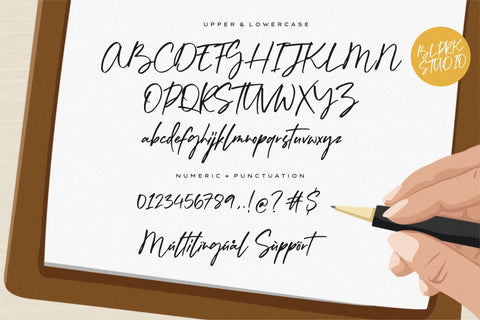 UPPER & LOWERCASE
ABCDEFGHIJKLMN
OPQRSTUVWXYZ
abcdefghijklmnopqrstuvwxyz
NUMERIC + PUNCTUATION
0123456789.,!@?#$
Múltilingúàl Sùppört
BLPRK
STUDIO